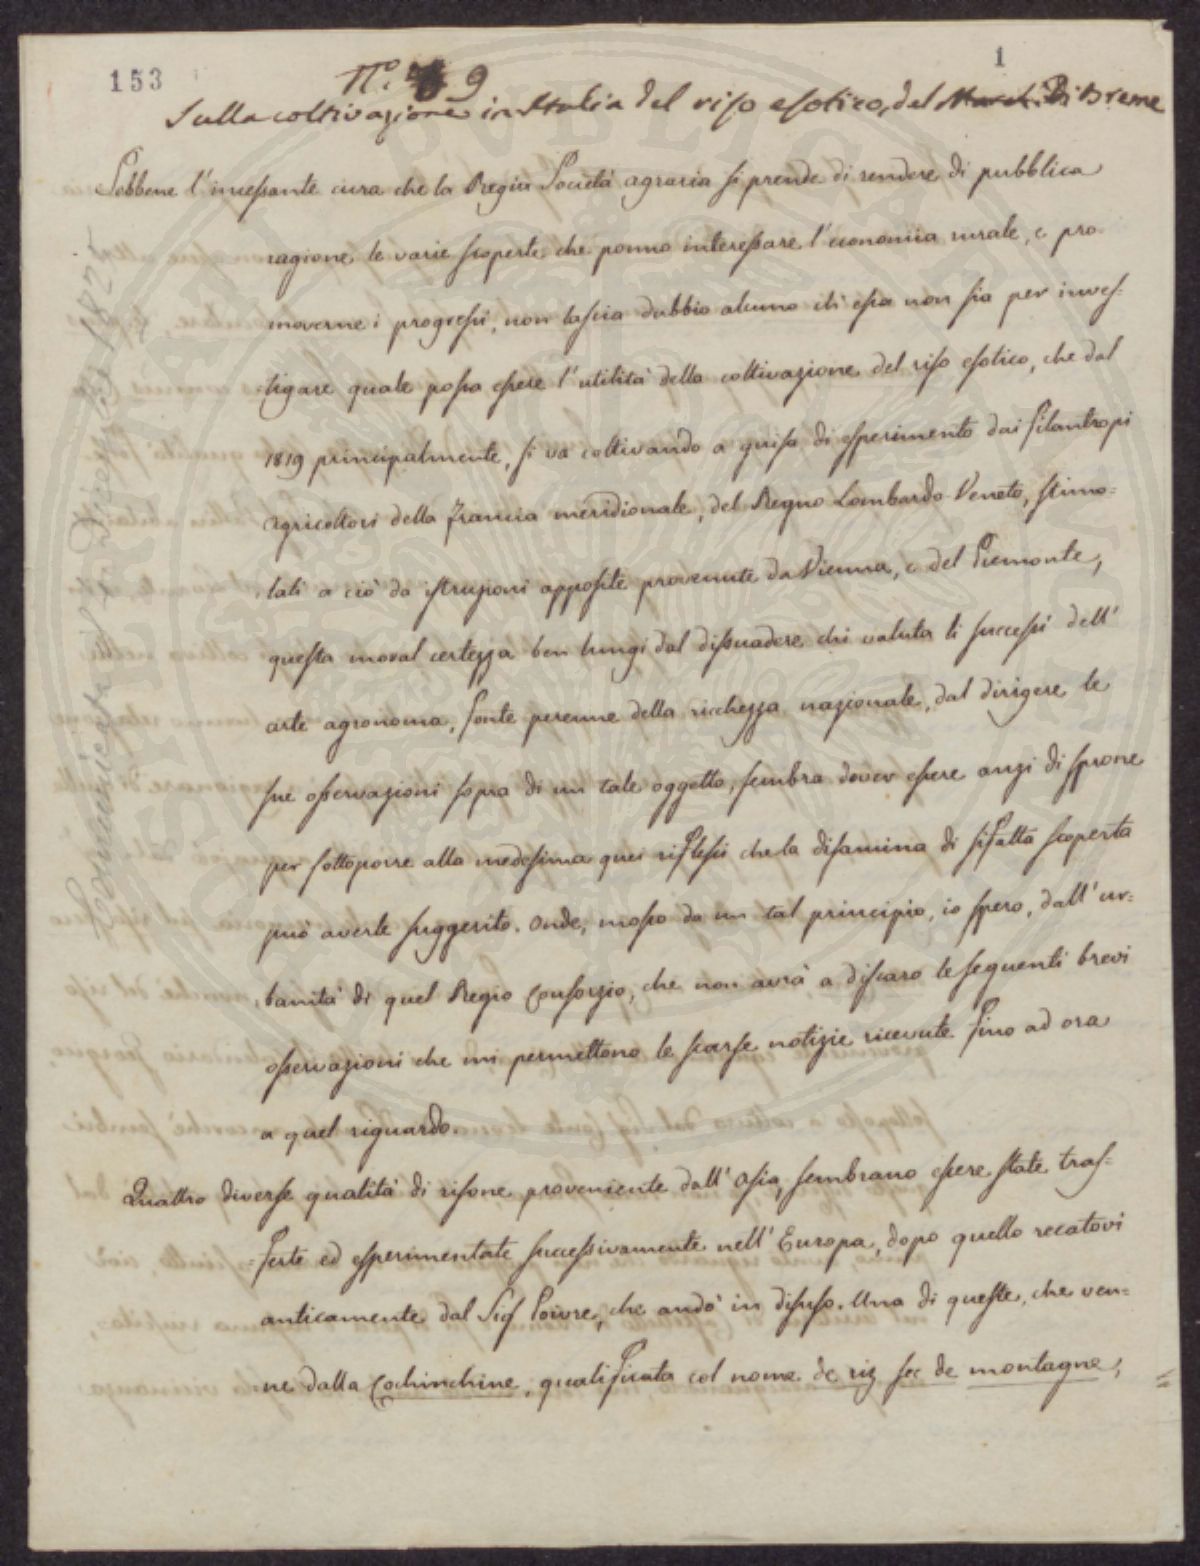 153
1
N.º 9
Sulla coltivazione in Italia del riso esotico, del March. Di Breme
Sebbene l'incessante cura che la Regia Società agraria si prende di rendere di pubblica
ragione le varie scoperte che ponno interessare l'economia rurale, e pro-
moverne i progressi, non lascia dubbio alcuno ch'essa non sia per inves-
tigare quale possa essere l'utilità della coltivazione del riso esotico, che dal
1819 principalmente, si va coltivando a guisa di esperimento dai filantropi
agricoltori della Francia meridionale, del Regno Lombardo-Veneto, stimo=
lati a ciò da istruzioni apposite provenute da Vienna, e del Piemonte,
questa moral certezza ben lungi dal dissuadere chi valuta li successi dell'
arte agronoma, fonte perenne della ricchezza nazionale, dal dirigere le
sue osservazioni sopra di un tale oggetto, sembra dover essere anzi di sprone
per sottoporre alla medesima quei riflessi che la disamina di sifatta scoperta
può averle suggerito. Onde, mosso da un tal principio, io spero, dall'ur=
banità di quel Regio Consorzio, che non avrà a discaro le seguenti brevi
osservazioni che mi permettono le scarse notizie ricevute fino ad ora
a quel riguardo.
Quattro diverse qualità di risone proveniente dall'Asia, sembrano essere state tras=
=ferte ed esperimentate successivamente nell'Europa, dopo quello recatovi
anticamente dal Sig Poivre, che andò in disuso. Una di queste, che ven=
ne dalla Cochinchine, qualificata col nome de riz sec de montagne,
Comunicata
1825